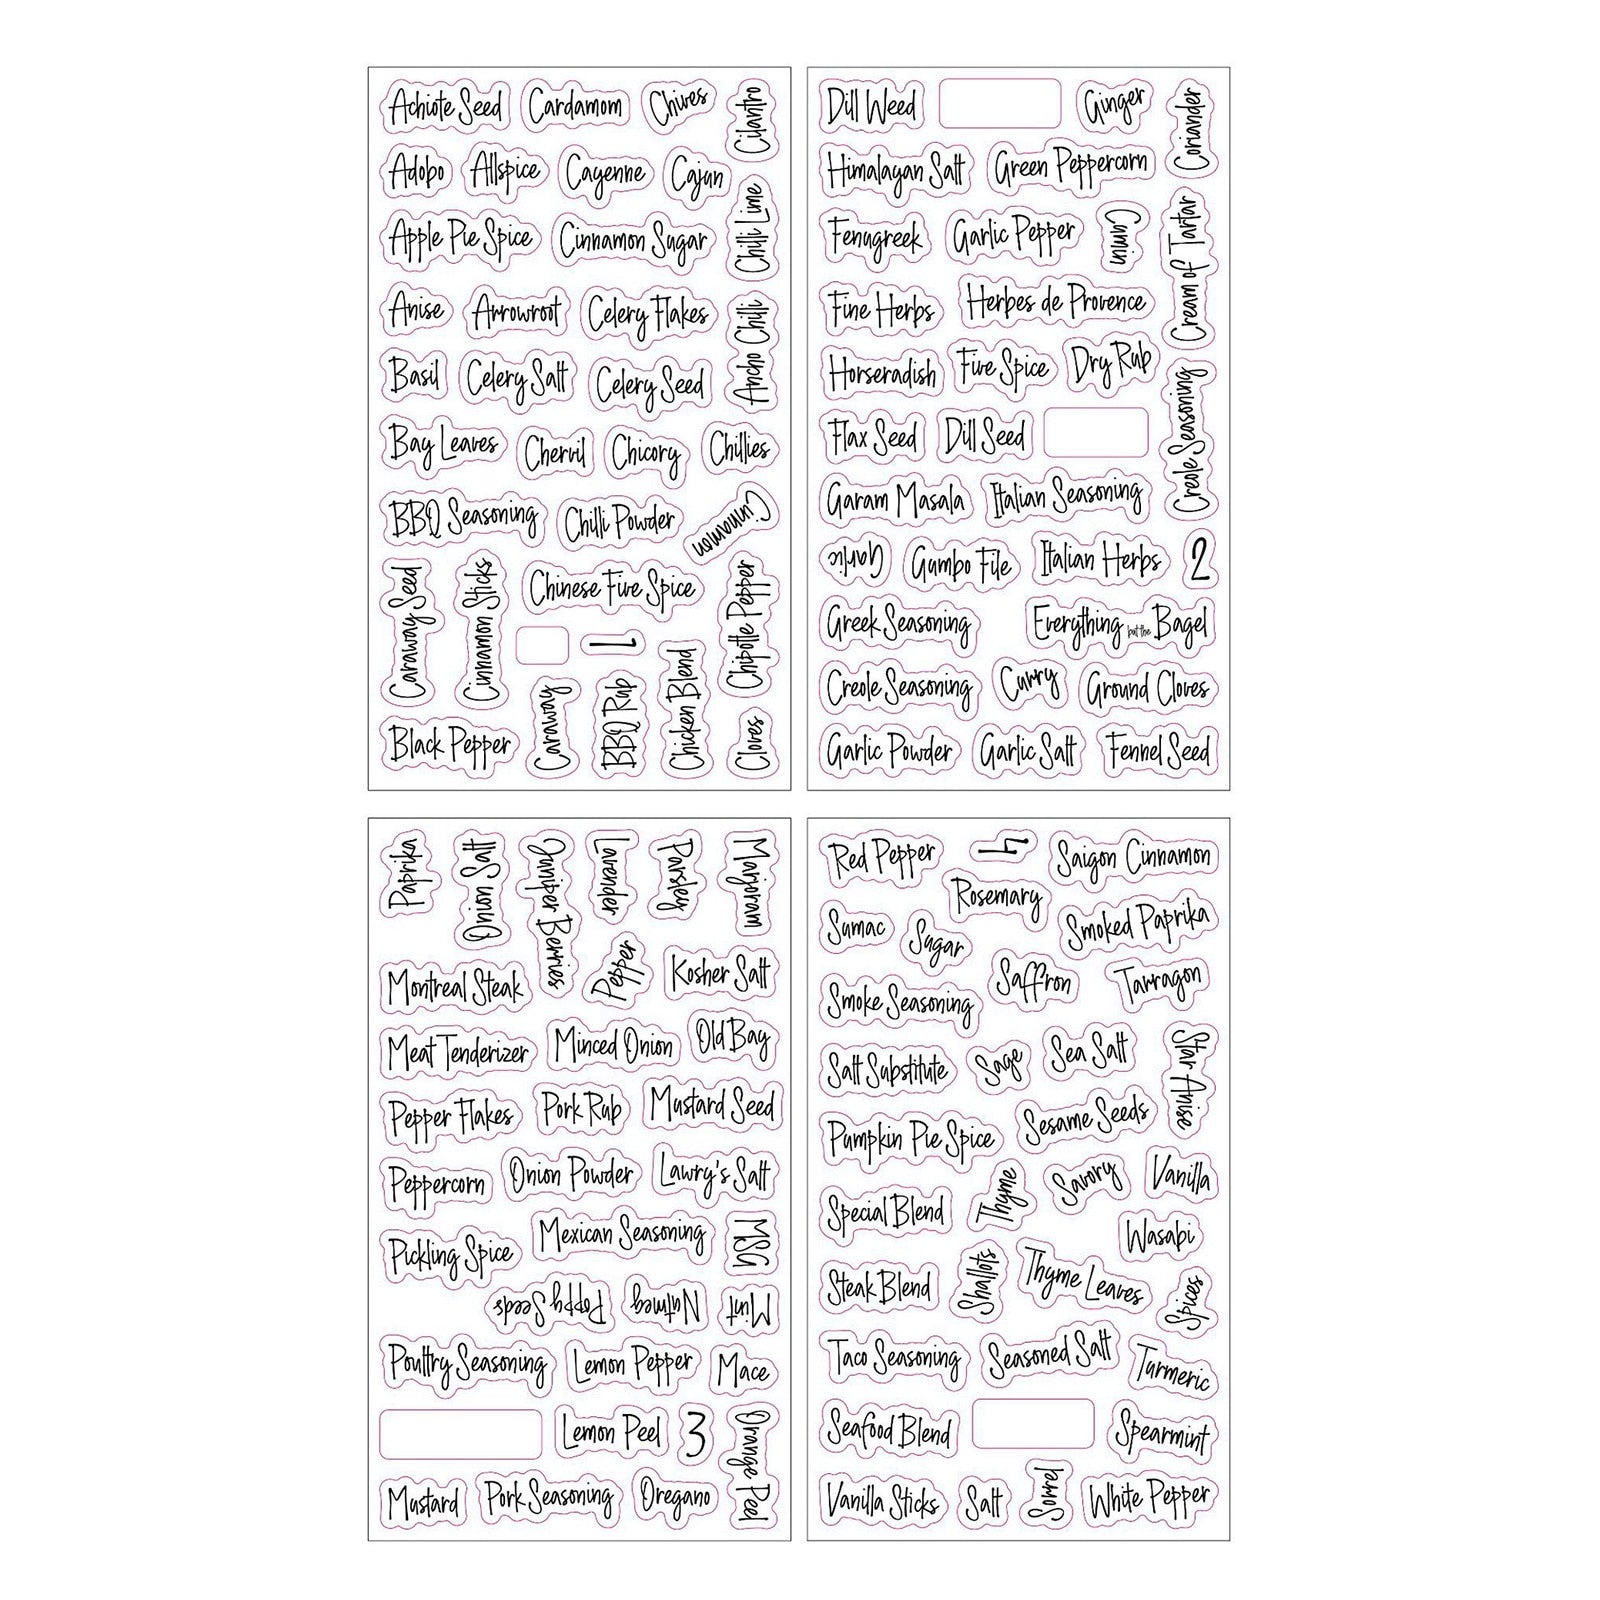 Achiote Seed
Cardamom
Chives
Cilantro
Adobo
Allspice
Cayenne
Cajun
Apple Pie Spice
Cinnamon Sugar
Chilli Lime
Anise
Arrowroot
Celery Flakes
Ancho Chilli
Basil
Celery Salt
Celery Seed
Bay Leaves
Chervil
Chicory
Chillies
BBQ Seasoning
Chilli Powder
Cinnamon
Caraway Seed
Cinnamon Sticks
Chinese Five Spice
Chipotle Pepper
1
Caraway
BBQ Rub
Chicken Blend
Cloves
Black Pepper
Dill Weed
Ginger
Coriander
Himalayan Salt
Green Peppercorn
Fenugreek
Garlic Pepper
Cumin
Cream of Tartar
Fine Herbs
Herbes de Provence
Horseradish
Five Spice
Dry Rub
Creole Seasoning
Flax Seed
Dill Seed
Garam Masala
Italian Seasoning
Garlic
Gumbo File
Italian Herbs
2
Greek Seasoning
Everything but the Bagel
Creole Seasoning
Curry
Ground Cloves
Garlic Powder
Garlic Salt
Fennel Seed
Paprika
Onion Salt
Juniper Berries
Lavender
Parsley
Marjoram
Montreal Steak
Pepper
Kosher Salt
Meat Tenderizer
Minced Onion
Old Bay
Pepper Flakes
Pork Rub
Mustard Seed
Peppercorn
Onion Powder
Lawry's Salt
Pickling Spice
Mexican Seasoning
MSG
Poppy Seeds
Nutmeg
Mint
Poultry Seasoning
Lemon Pepper
Mace
Lemon Peel
3
Orange Peel
Mustard
Pork Seasoning
Oregano
Red Pepper
4
Saigon Cinnamon
Rosemary
Sumac
Sugar
Smoked Paprika
Saffron
Tarragon
Smoke Seasoning
Salt Substitute
Sage
Sea Salt
Star Anise
Pumpkin Pie Spice
Sesame Seeds
Special Blend
Thyme
Savory
Vanilla
Wasabi
Steak Blend
Shallots
Thyme Leaves
Spices
Taco Seasoning
Seasoned Salt
Turmeric
Seafood Blend
Spearmint
Vanilla Sticks
Salt
Sorrel
White Pepper